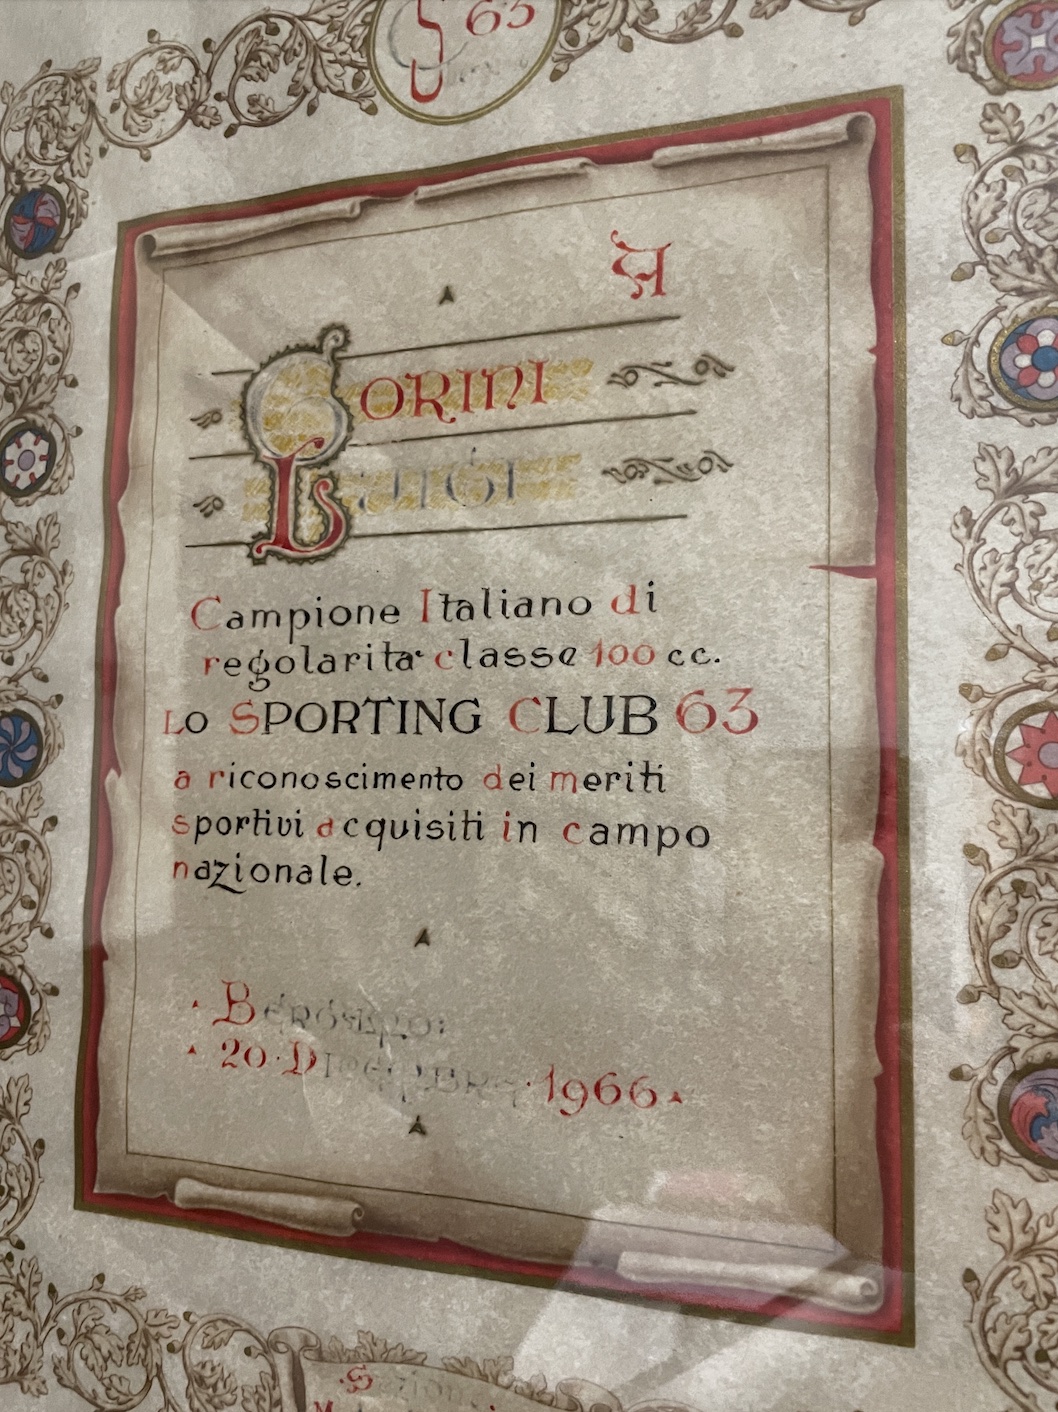 63
A
GORINI
LUIGI
Campione Italiano di
regolarita' classe 100 cc.
LO SPORTING CLUB 63
a riconoscimento dei meriti
sportivi acquisiti in campo
nazionale.
BERGAMO:
20·DICEMBRE·1966